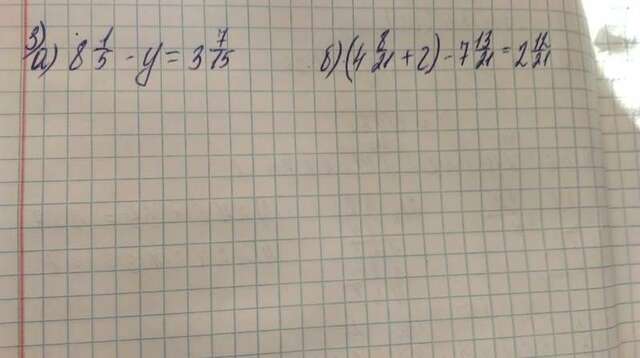 3)
а) 8 1/5 - y = 3 7/15
б) (4 8/21 + z) - 7 13/21 = 2 12/21